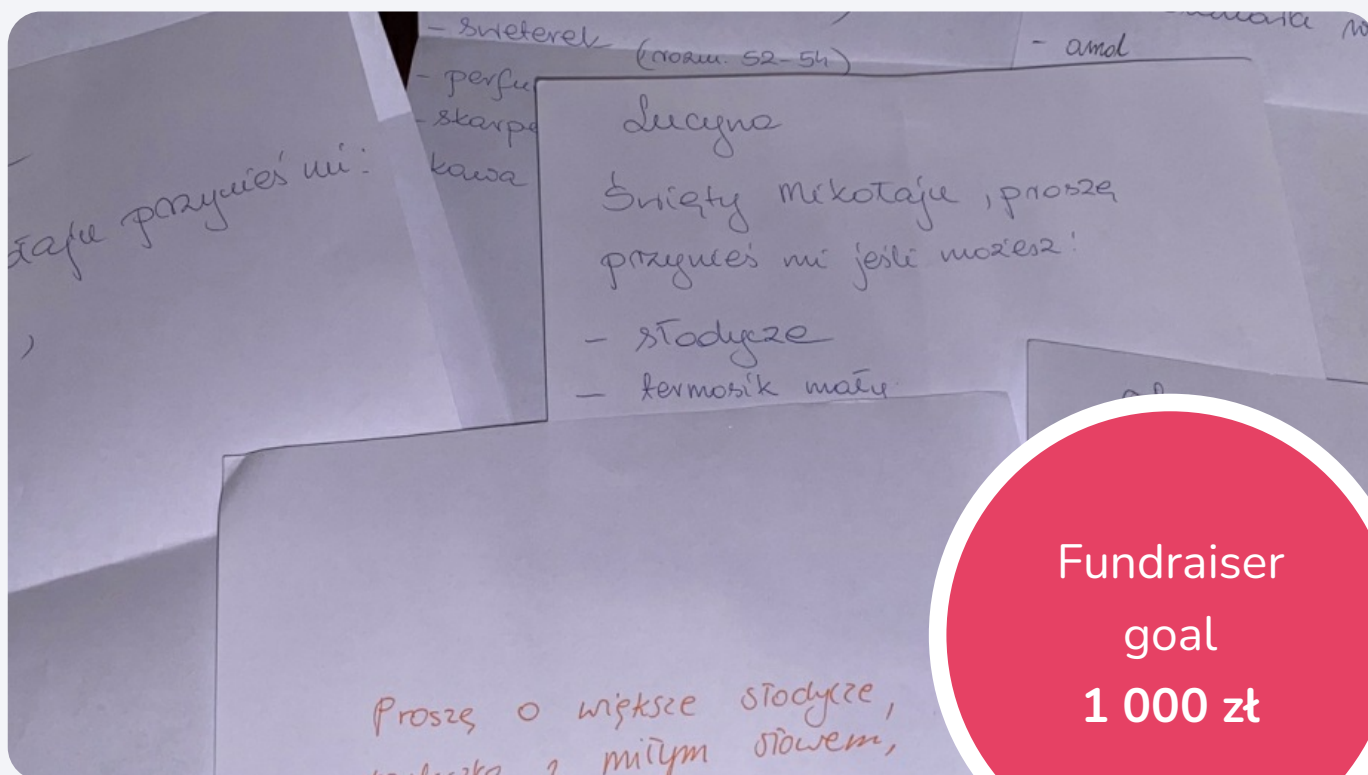 - sweterek
(rozm. 52-54)
- perfu
- skarpe
kawa
- amol
taju przynieś mi:
,
Lucyna
Święty Mikołaju, proszę
przynieś mi jeśli możesz:
- słodycze
- termosik mały
Proszę o większe słodycze,
z miłym słowem,
Fundraiser
goal
1 000 zł